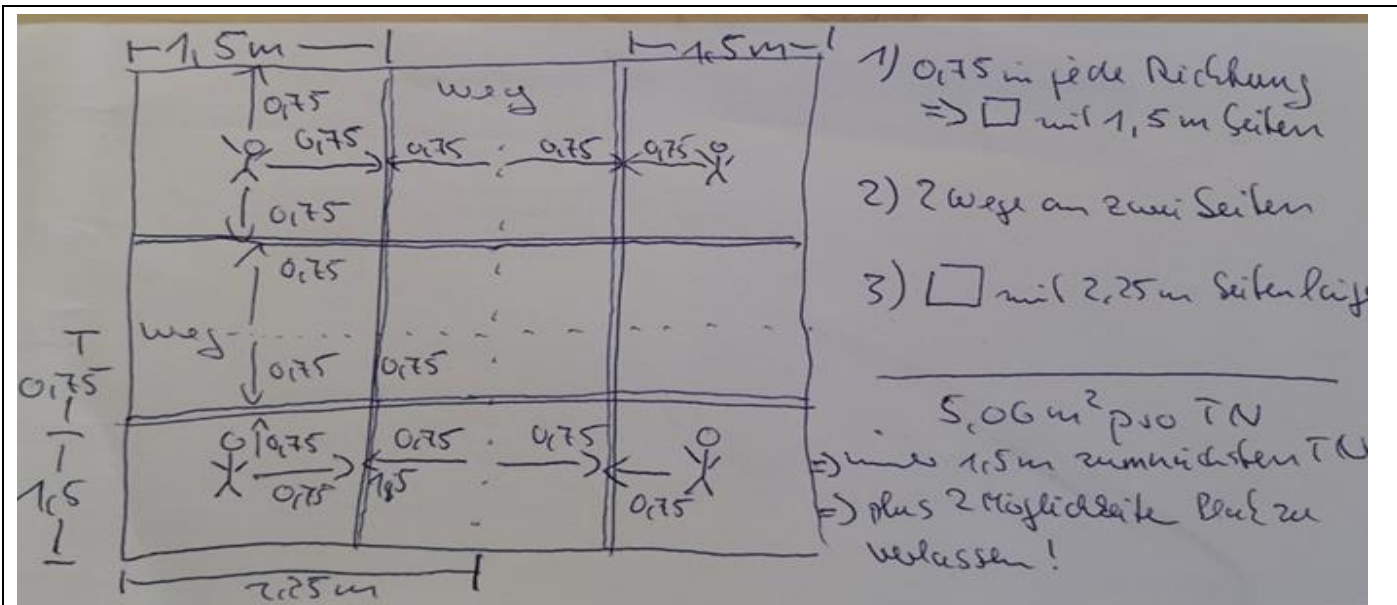 1,5m
1,5m
0,75
weg
0,75
0,75
0,75
0,75
0,75
0,75
weg
0,75
0,75
0,75
1,5
0,75
0,75
0,75
0,75
0,75
1,5
0,75
2,25m
1) 0,75 in jede Richtung
=> □ mit 1,5 m Seiten
2) 2 Wege an zwei Seiten
3) □ mit 2,25 m Seitenläng
5,06 m² pro TN
=> 1,5m zum nächsten TN
=> plus 2 Möglichkeite zu
verlassen!